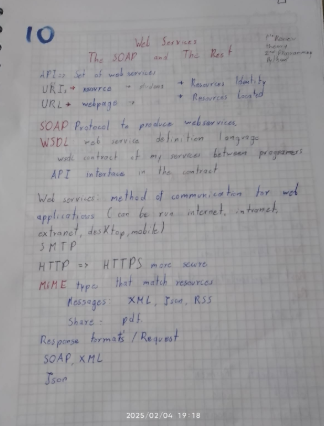 10
Web Services
The SOAP and The Rest
API => Set of web services
URI => source + Resources Identity
URL + webpage + Resources Located
SOAP Protocol to produce webservices
WSDL web service definition language
contract of my services between programmers
API interface in the contract
Web services: method of communication for web
applications (can be run internet, intranet,
extranet, desKtop, mobile)
SMTP
HTTP => HTTPS more secure
MIME types that match resources
Messages XML, Json, RSS
Share: pdf
Response formats / Request
SOAP, XML
Json
2025/02/04 19:18